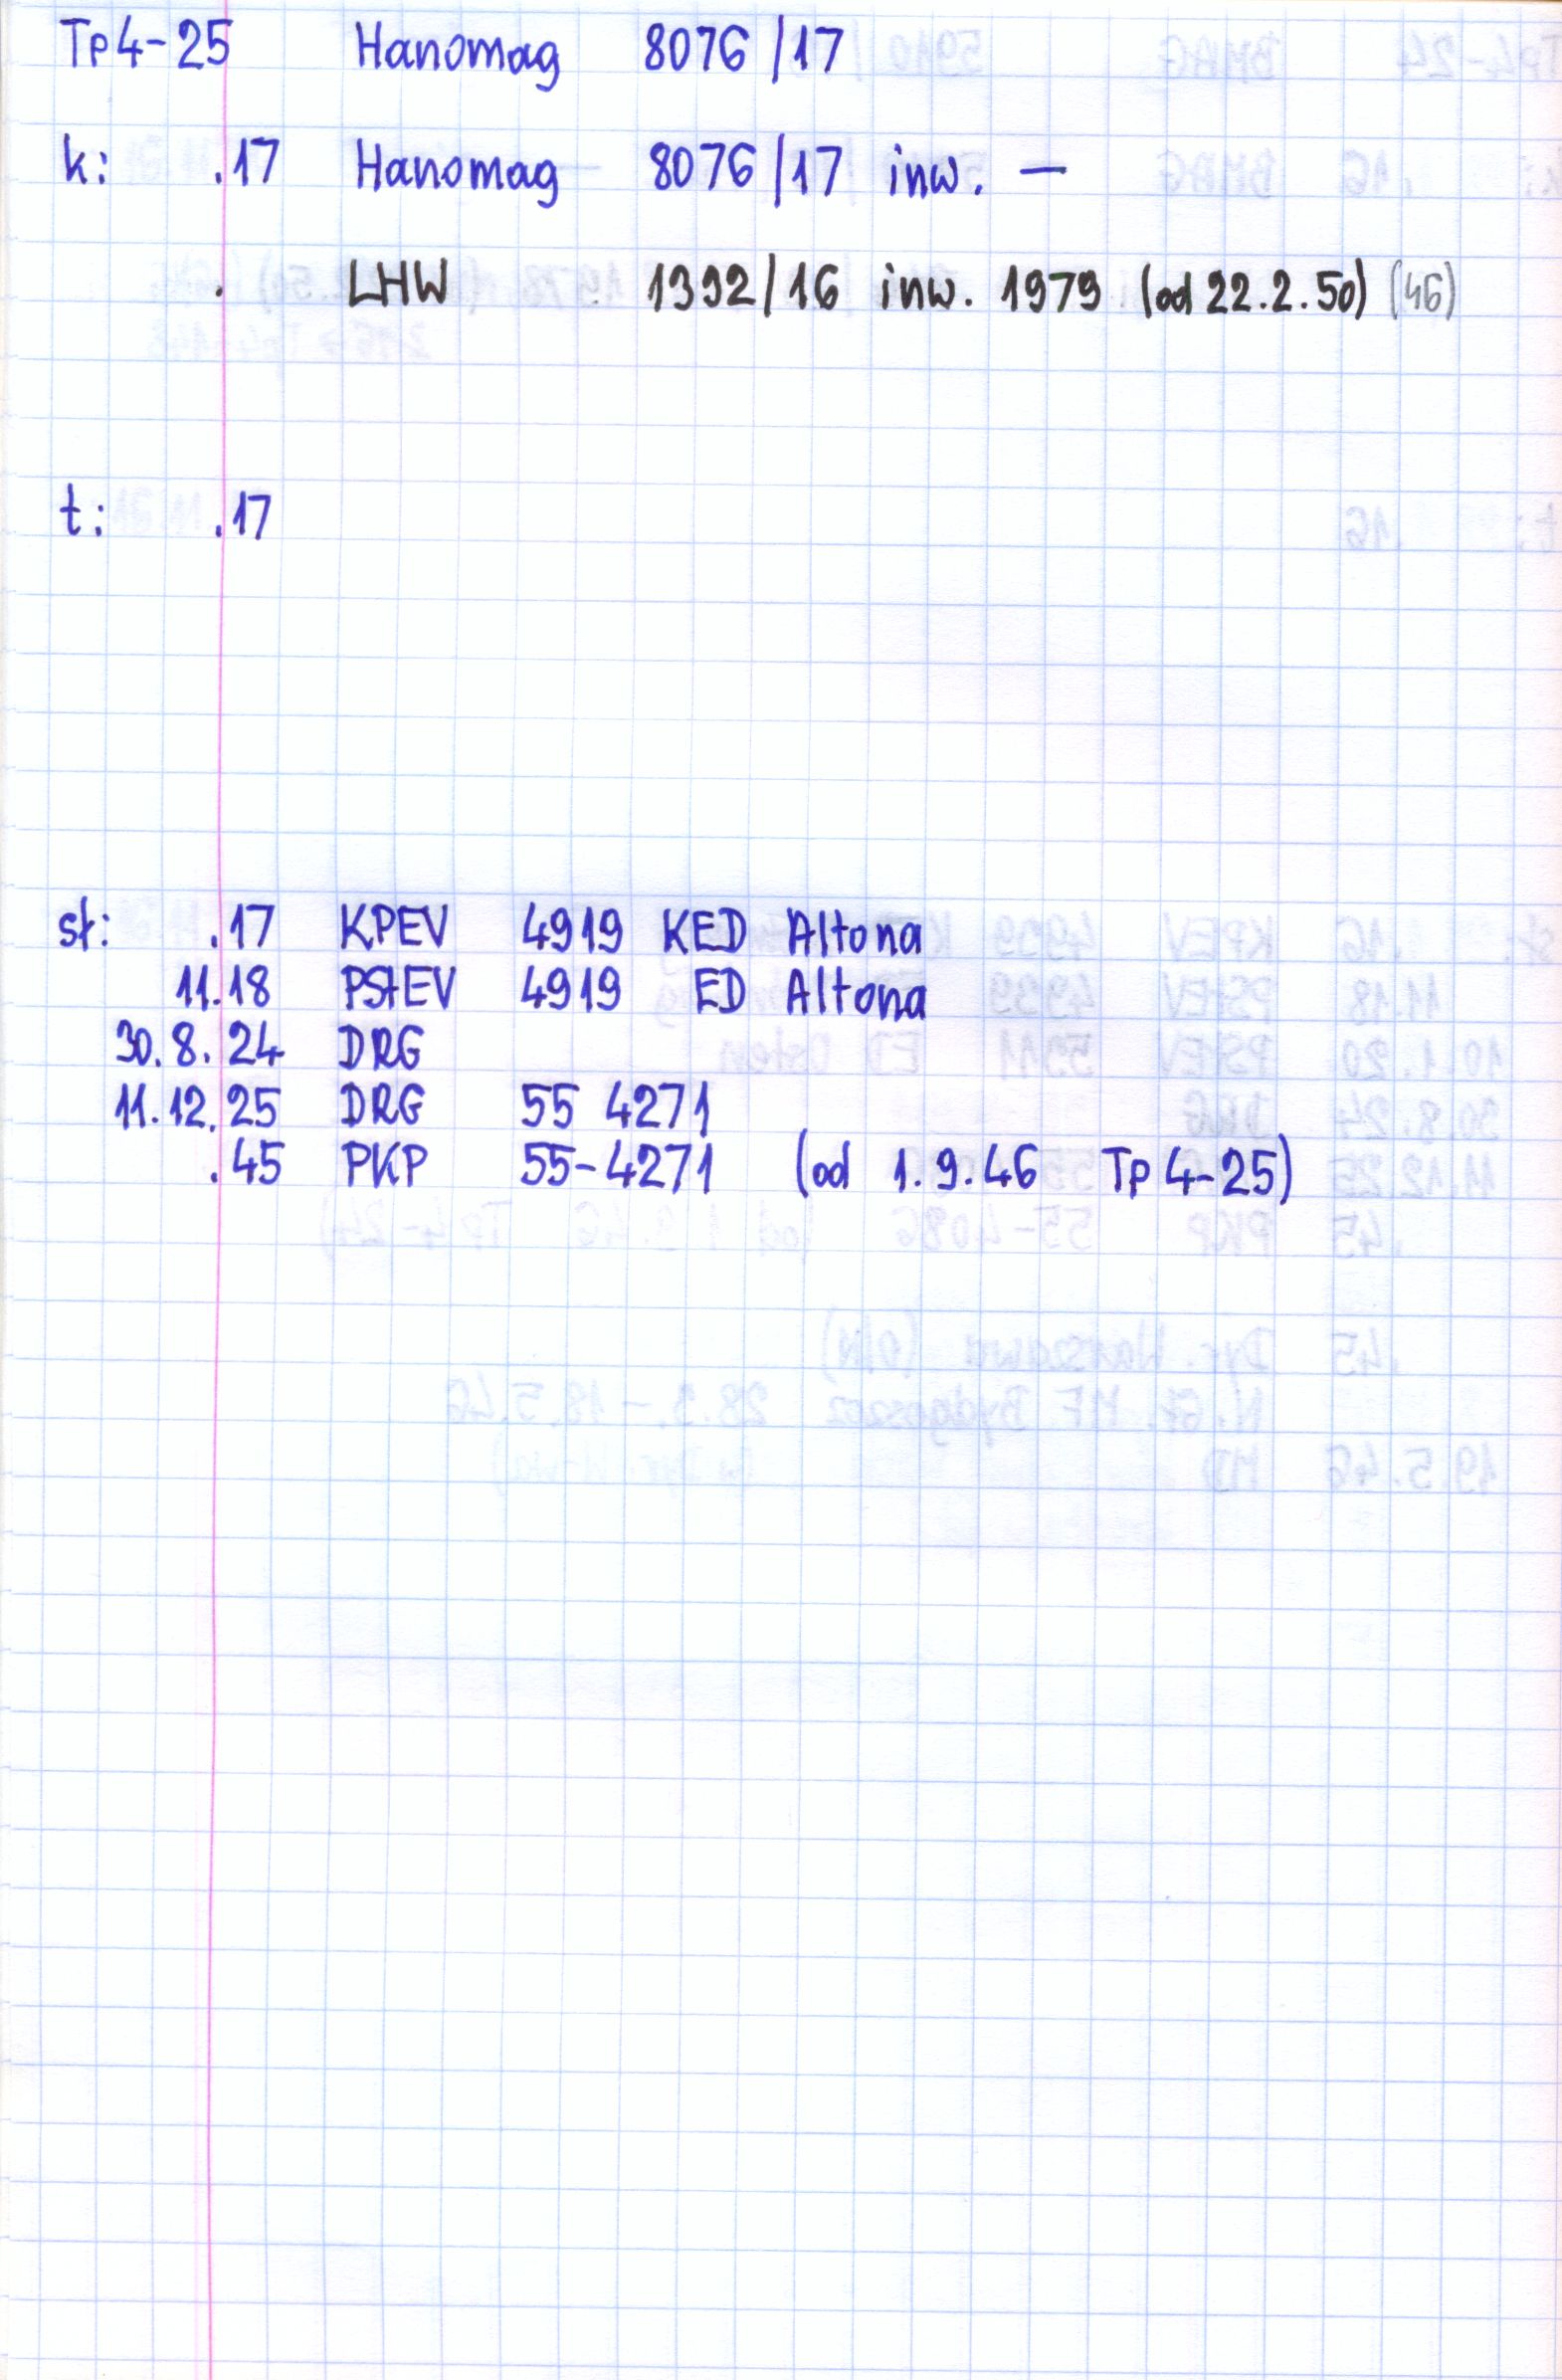 Tp4-25 Hanomag 8076/17
k: .17 Hanomag 8076/17 inw. —
. LHW 1392/16 inw. 1979 (od 22.2.50) (46)
t: .17
st: .17 KPEV 4919 KED Altona
11.18 PStEV 4919 ED Altona
30.8.24 DRG
11.12.25 DRG 55 4271
.45 PKP 55-4271 (od 1.9.46 Tp4-25)